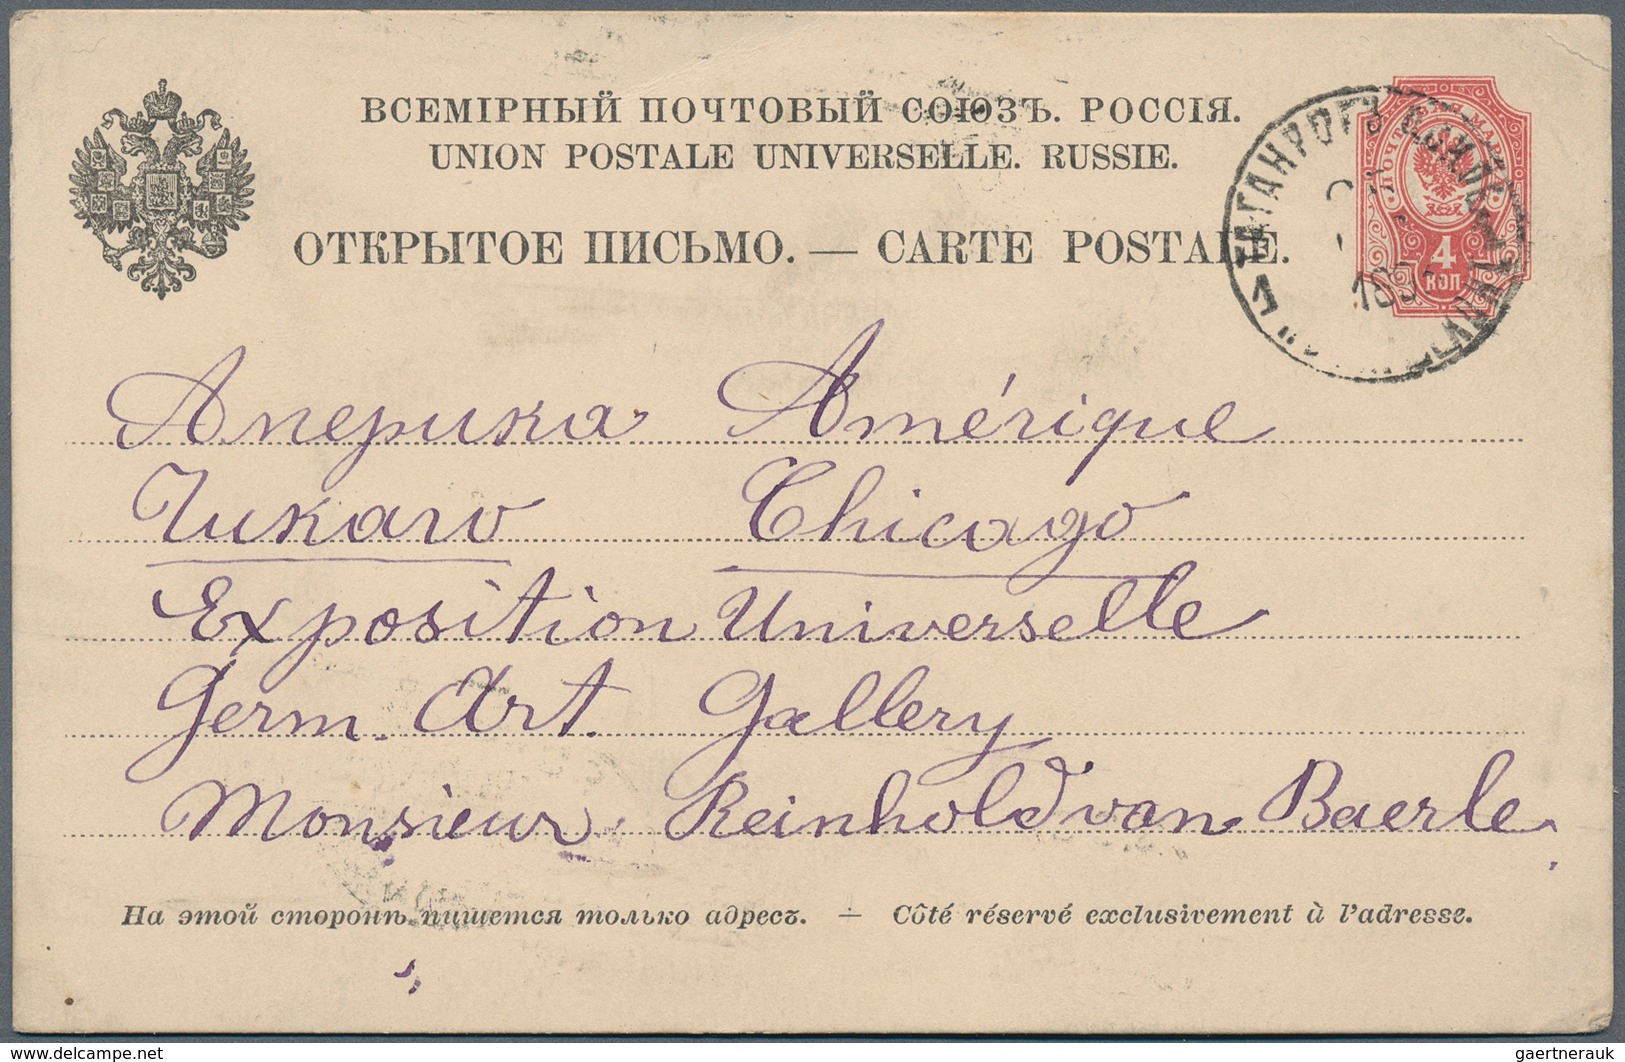 ВСЕМІРНЫЙ ПОЧТОВЫЙ СОЮЗЪ. РОССІЯ.
UNION POSTALE UNIVERSELLE. RUSSIE.
ОТКРЫТОЕ ПИСЬМО. — CARTE POSTALE.
ПОЧТОВАЯ МАРКА
4
КОП.
ТАГАНРОГЪ
1
Америка Amérique
Чикаго Chicago
Exposition Universelle
Germ. Art. Gallery
Monsieur Reinhold von Baerle
На этой сторонѣ пишется только адресъ. — Côté réservé exclusivement à l'adresse.
www.delcampe.net
gaertnerauk